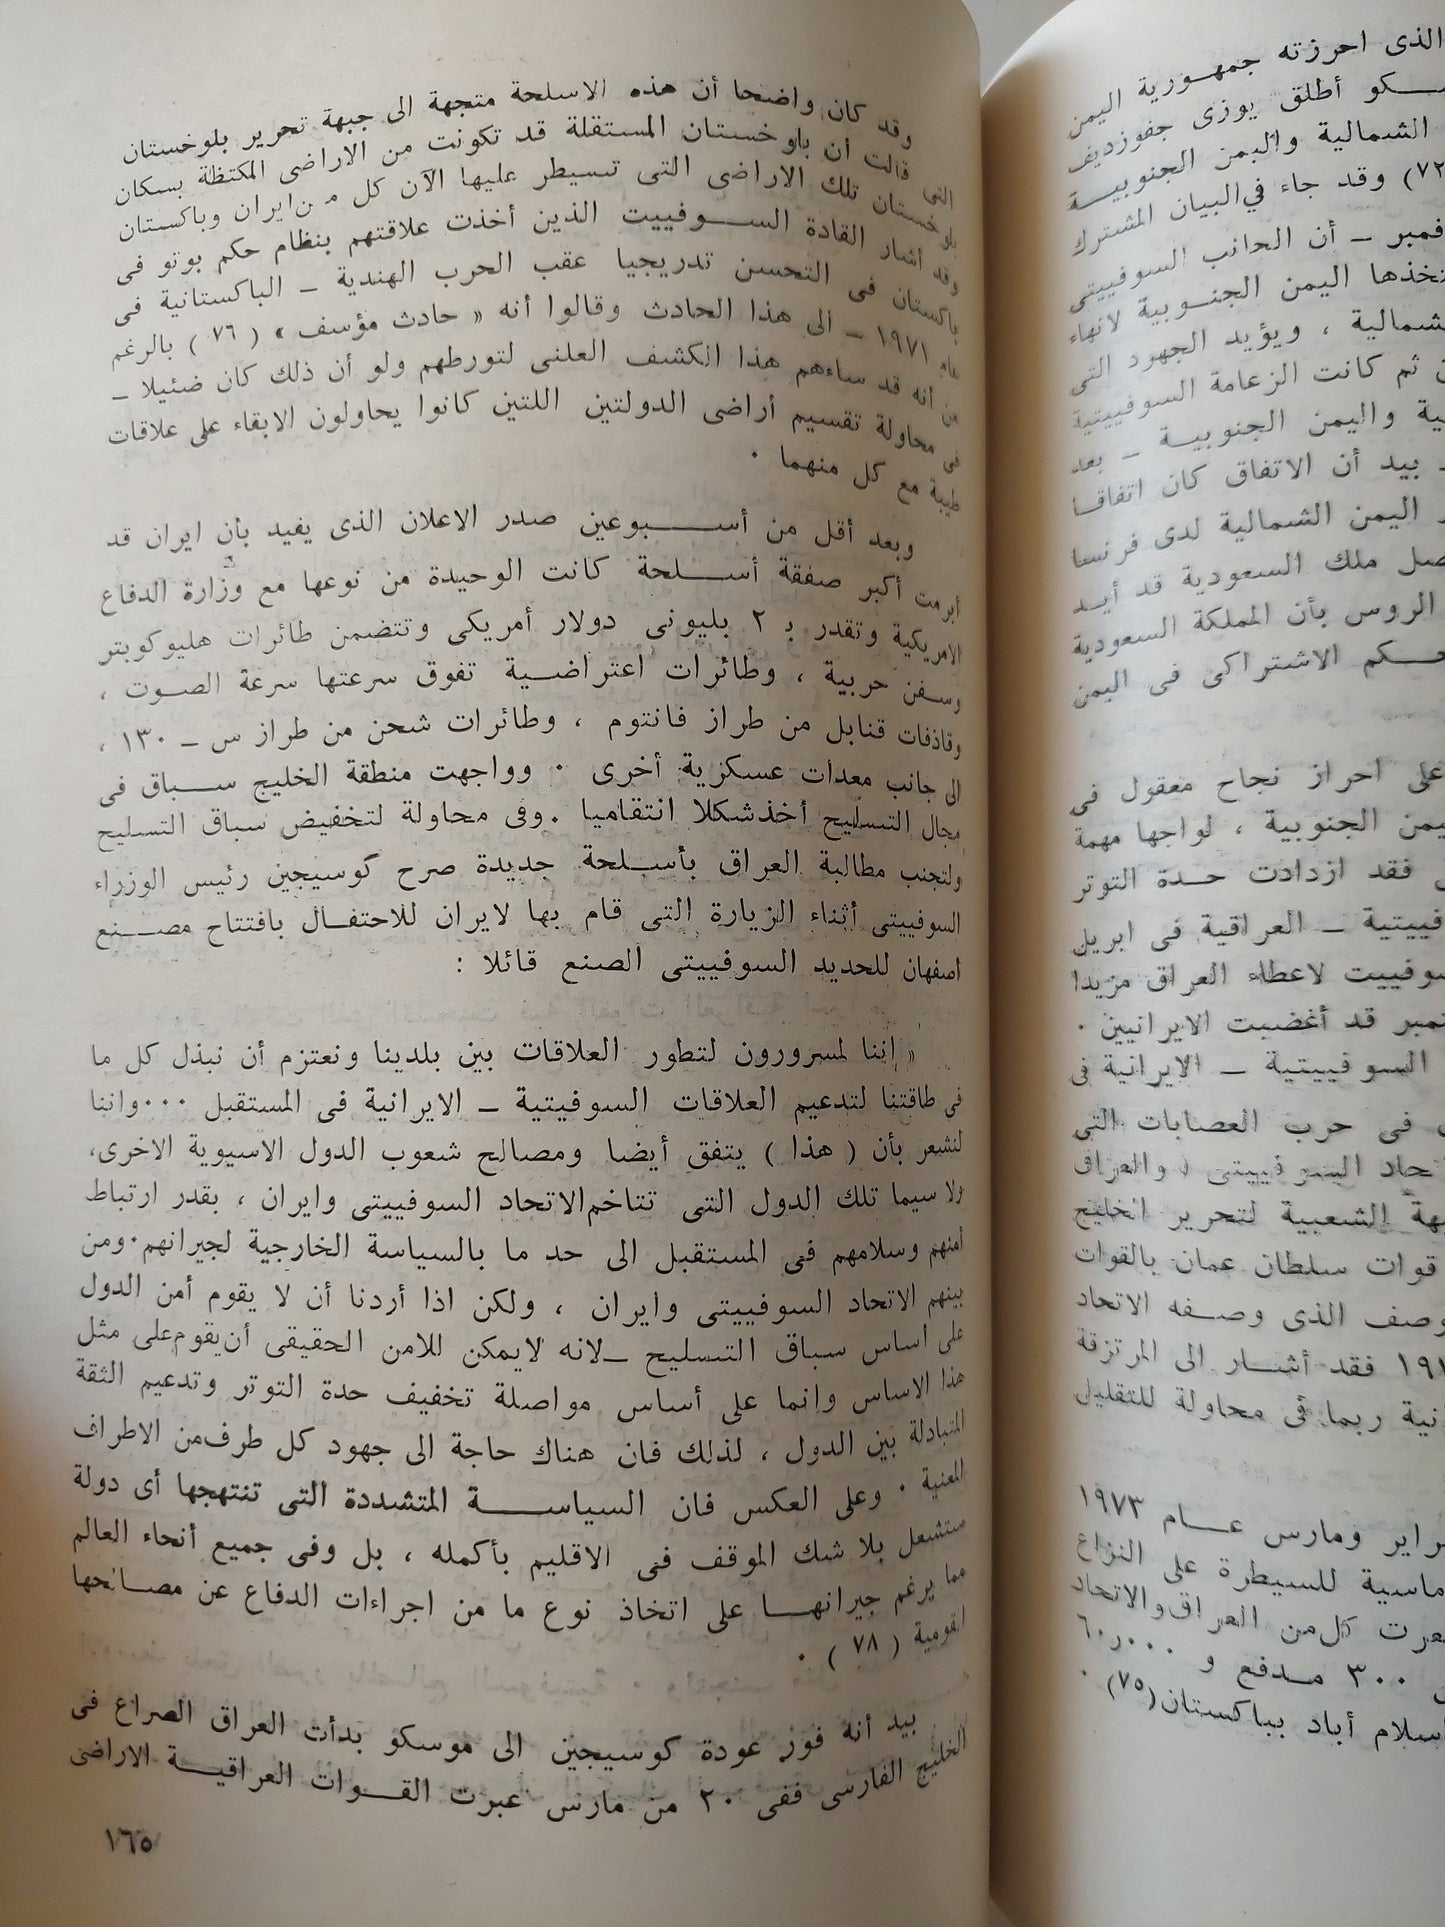 الذى احرزته جمهورية اليمن
ـسكو أطلق يوزى جفوزديف
الشمالية واليمن الجنوبيـــة
٧٢) وقد جاء في البيان المشترك
فمبر ـ أن الجانب السوفييتى
تخذها اليمن الجنوبية لانهاء
شمالية ، ويؤيد الجهود التى
ن ثم كانت الزعامة السوفييتية
ية واليمن الجنوبيـة ـ بعد
ـ بيد أن الاتفاق كان اتفاقا
ر اليمن الشمالية لدى فرنسا
صل ملك السعودية قد أيد
الروس بأن المملكة السعودية
حـكم الاشتراكى فى اليمن
على احراز نجاح معقول فى
يمن الجنوبية ، لواجها مهمة
فقد ازدادت حدة التوتر
فييتية ـ العراقية فى ابريل
سوفييت لاعطاء العراق مزيدا
تمبر قد أغضبت الايرانيين ·
السوفييتية ـ الايرانية فى
فى حرب العصابات التى
تحاد السوفييتى ، والعراق
بهة الشعبية لتحرير الخليج
قوات سلطان عمان بالقوات
وصف الذى وصفه الاتحاد
١٩٧ فقد أشار الى المرتزقة
انية ربما فى محاولة للتقليل
براير ومارس عـــام ١٩٧٣
ماسية للسيطرة على النزاع
عرت كل من العراق والاتحاد
٣٠٠ مـدفع و ٦٠٫٠٠٠
اسلام أباد بباكستان (٧٥) ·
وقد كان واضحا أن هذه الاسلحة متجهة الى جبهة تحرير بلوخستان
التى قالت أن بلوخستان المستقلة قد تكونت من الاراضى المكتظة بسكان
بلوخستان تلك الاراضى التى تسيطر عليها الآن كل من ايران وباكستان
وقد أشار القادة الســـوفييت الذين أخذت علاقتهم بنظام حكم بوتو فى
باكستان فى التحسن تدريجيا عقب الحرب الهندية ـ الباكستانية فى
عام ١٩٧١ ـ الى هذا الحادث وقالوا أنه « حادث مؤسف » ( ٧٦ ) بالرغم
من أنه قد ساءهم هذا الكشف العلنى لتورطهم ولو أن ذلك كان ضئيلا ـ
فى محاولة تقسيم أراضى الدولتين اللتين كانوا يحاولون الابقاء على علاقات
طيبة مع كل منهما ·
وبعد أقل من أســـبوعين صدر الاعلان الذى يفيد بأن ايران قد
أبرمت أكبر صفقة أســلحة كانت الوحيدة من نوعها مع وزارة الدفاع
الامريكية وتقدر بـ ٢ بليونى دولار أمريكى وتتضمن طائرات هليوكوبتر
وسـفن حربية ، وطائرات اعتراضـية تفوق سرعتها سرعة الصـوت ،
وقاذفات قنابل من طراز فانتوم ، وطائرات شحن من طراز س ـ ١٣٠ ،
الى جانب معدات عسكزية أخرى · وواجهت منطقة الخليج ســباق فى
مجال التسليح أخذ شكلا انتقاميا · وفى محاولة لتخفيض سباق التسليح
ولتجنب مطالبة العراق بأسـلحة جديدة صرح كوسيجين رئيس الوزراء
السوفييتى أثناء الزيارة التى قام بها لايران للاحتفـال بافتتاح مصــنع
اصفهان للحديد السوفييتى الصنع قائلا :
« اننا لمسرورون لتطور العلاقات بين بلدينا ونعتزم أن نبذل كل ما
فى طاقتنا لتدعيم العلاقات السوفيتية ـ الايرانية فى المستقبل ··· واننا
لنشعر بأن ( هذا ) يتفق أيضا ومصالح شعوب الدول الاسيوية الاخرى،
ولا سيما تلك الدول التى تتاخم الاتحاد السوفييتى وايران ، بقدر ارتباط
أمنهم وسلامهم فى المستقبل الى حد ما بالسياسة الخارجية لجيرانهم · ومن
بينهم الاتحاد السوفييتى وايران ، ولكن اذا أردنا أن لا يقوم أمن الدول
على أساس سباق التسليح ـ لانه لا يمكن للامن الحقيقى أن يقوم على مثل
هذا الاساس وانما على أساس مواصلة تخفيف حدة التوتر وتدعيم الثقة
المتبادلة بين الدول ، لذلك فان هناك حاجة الى جهود كل طرف من الاطراف
المعنية · وعلى العكس فان السياســـة المتشددة التى تنتهجها أى دولة
ستشعل بلا شك الموقف فى الاقليم بأكمله ، بل وفى جميع أنحاء العالم
مما يرغم جيرانهــا على اتخاذ نوع ما من اجراءات الدفاع عن مصـالحها
القومية ( ٧٨ ) ·
بيد أنه فور عودة كوسيجين الى موسكو بدأت العراق الصراع فى
الخليج الفارسى ففى ٢٠ من مارس عبرت القــوات العراقيــة الاراضى
١٦٥